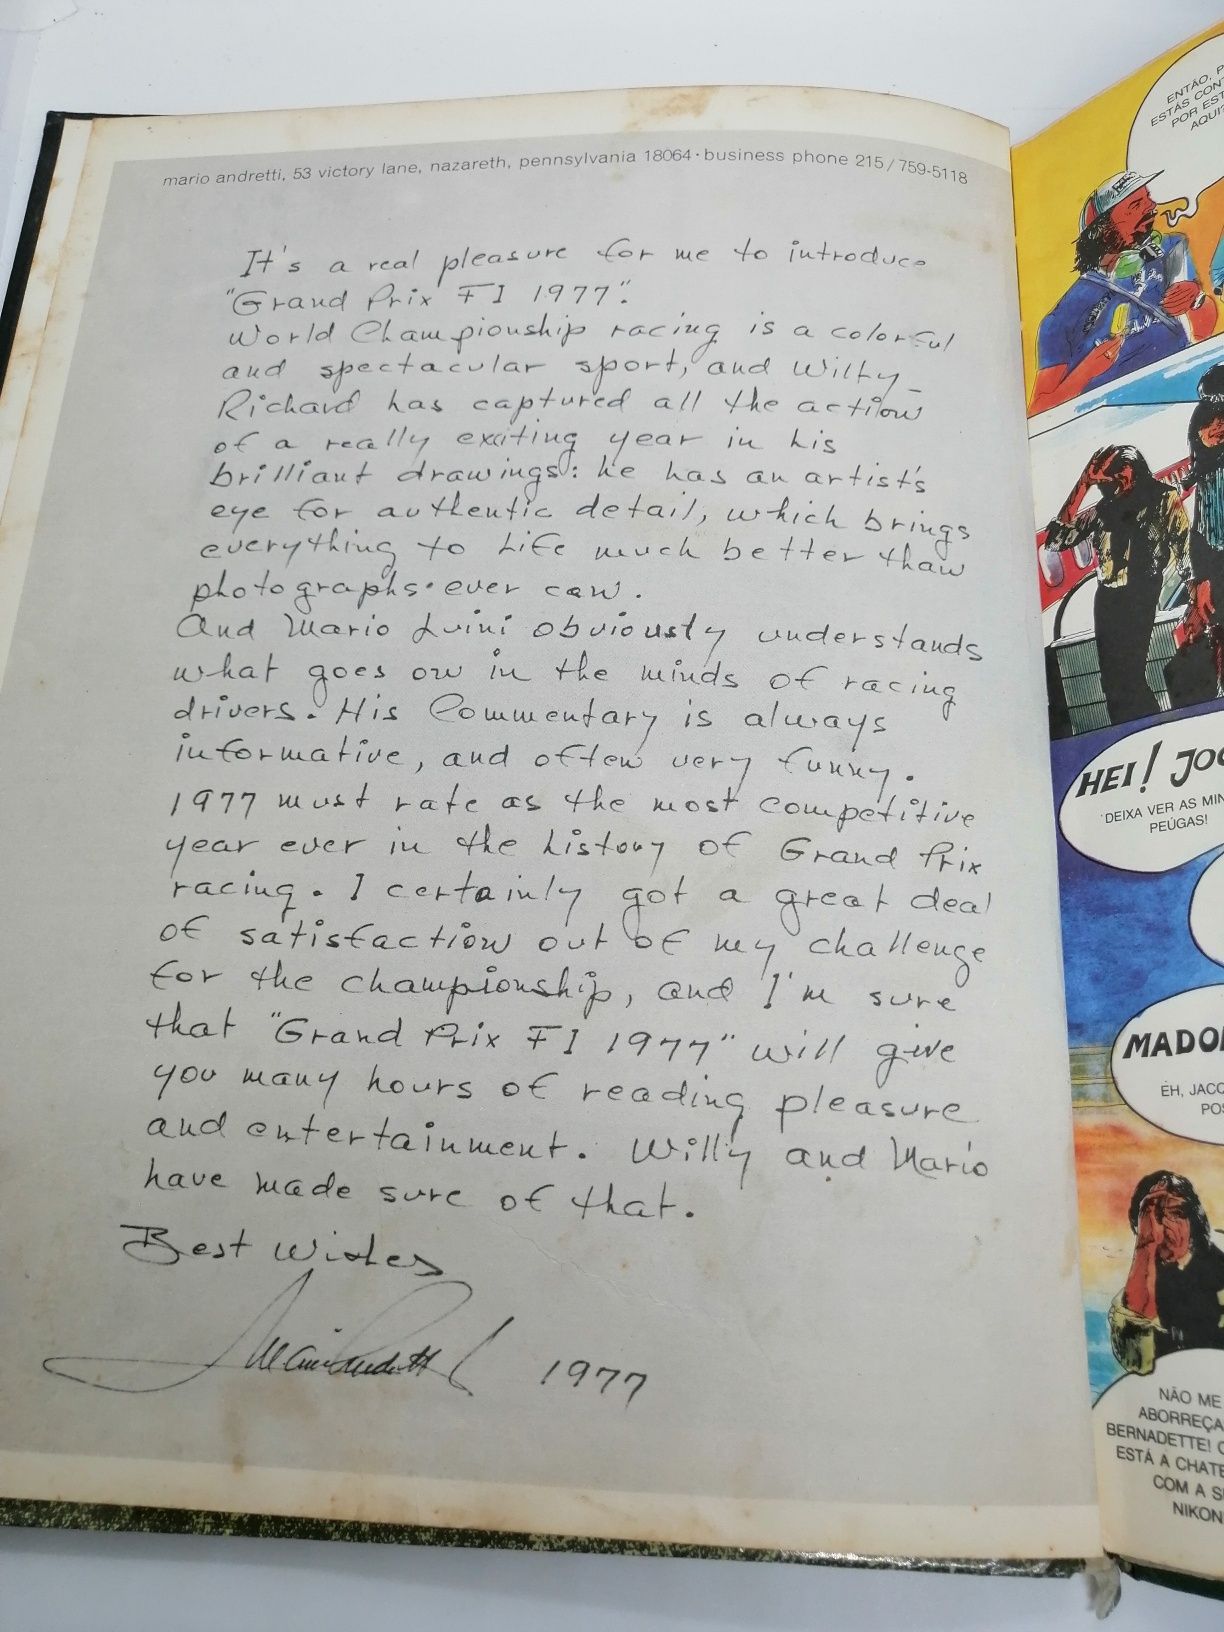 mario andretti, 53 victory lane, nazareth, pennsylvania 18064 · business phone 215/759-5118
It's a real pleasure for me to introduce
"Grand Prix F1 1977".
World Championship racing is a colorful
and spectacular sport, and Willy-
Richard has captured all the action
of a really exciting year in his
brilliant drawings: he has an artist's
eye for authentic detail, which brings
everything to life much better than
photographs ever can.
And Mario Luini obviously understands
what goes on in the minds of racing
drivers. His Commentary is always
informative, and often very funny.
1977 must rate as the most competitive
year ever in the history of Grand Prix
racing. I certainly got a great deal
of satisfaction out of my challenge
for the championship, and I'm sure
that "Grand Prix F1 1977" will give
you many hours of reading pleasure
and entertainment. Willy and Mario
have made sure of that.
Best Wishes
Mario Andretti 1977
ENTÃO,
ESTÁS
POR
AQUI
HEI!
DEIXA VER AS
PEÚGAS!
EH,
NÃO ME
ABORREÇA
BERNADETTE!
ESTÁ A
COM A
NIKON